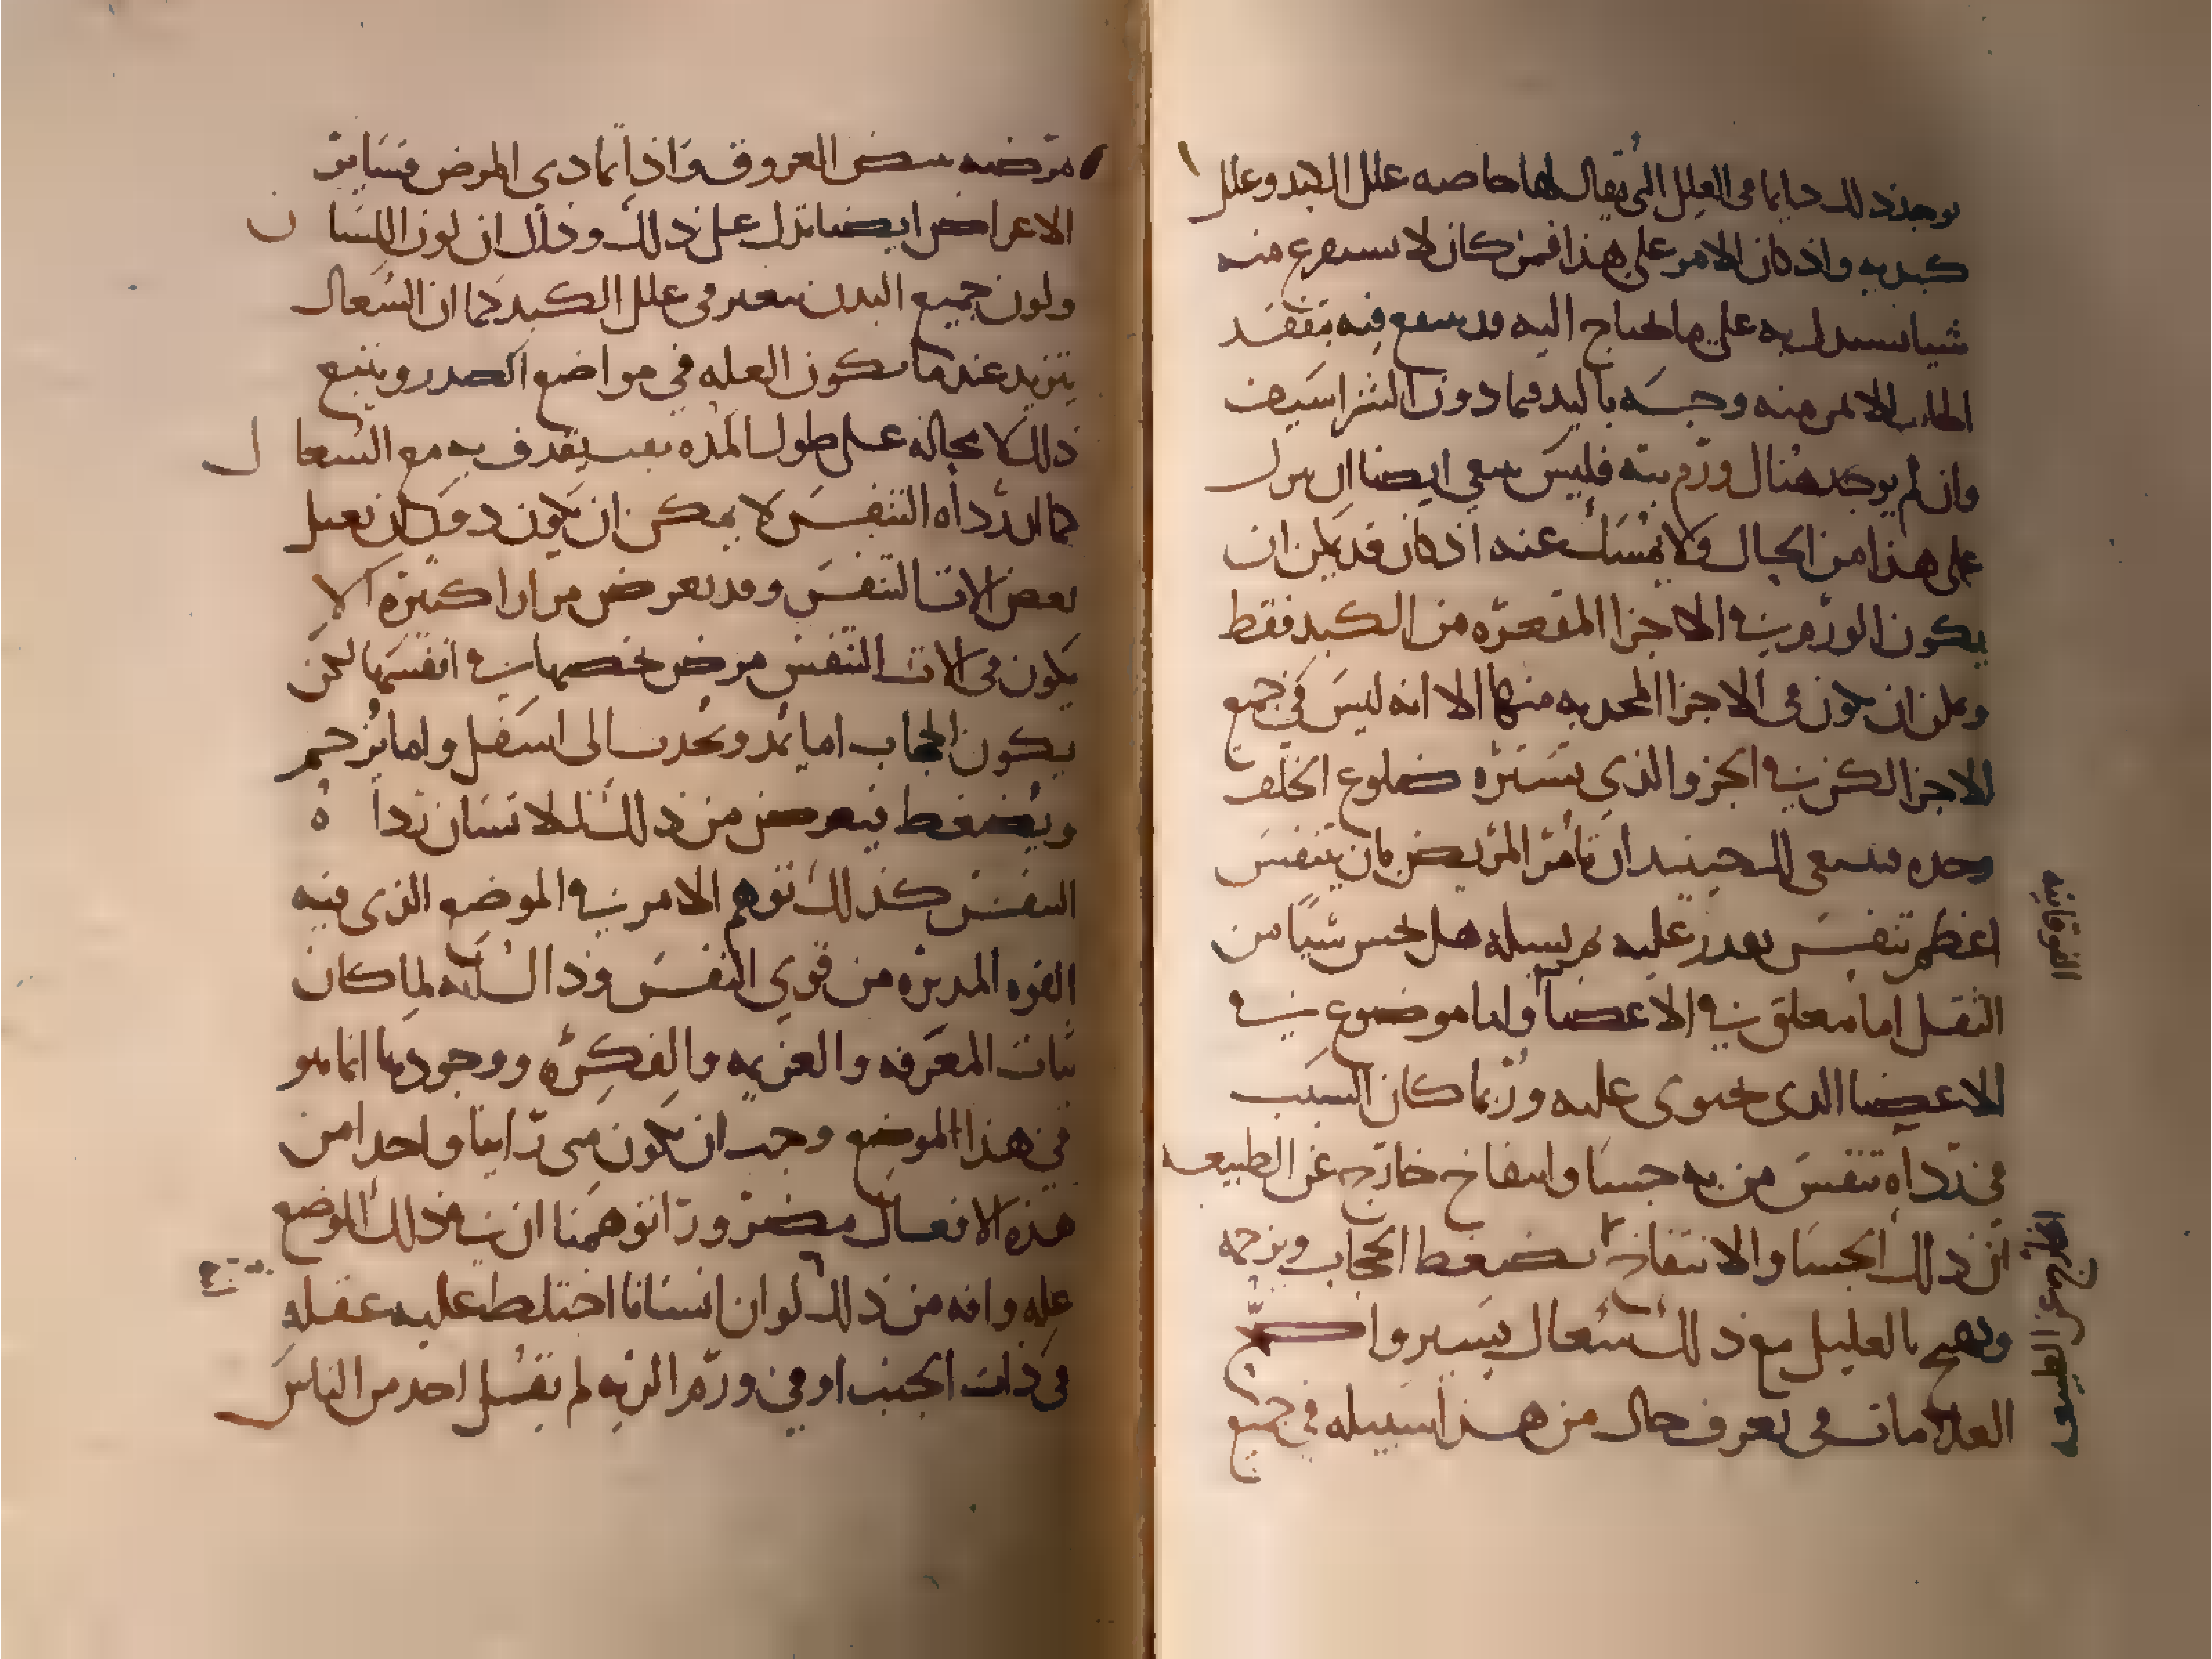 يوجد ذلك دايما في العلل التي يقال لها خاصه علل الكبد وعلل
كبديه واذ كان الامر على هذا فمن كان لا يستفرغ منه
شيا نستدل به على ما نحتاج اليه فد ينتفع فيه بتفقد
الامر منه وجسه باليد فيما دون الشراسيف
وان لم يوجد هناك ورم بته فليس ينبغي ايضا ان يترك
على هذا من الحال ولا يمسك عنه اذ كان قد يمكن ان
يكون الورم في الاجزا المقعره من الكبد فقط
ويمكن ان يكون في الاجزا المحدبه منها الا انه ليس في جميع
الاجزا لكن في الجزو الذي تستره ضلوع الخلف
وحده فينبغي لك حينيذ ان تامر المريض بان يتنفس
اعظم تنفس يقدر عليه ثم يسيله هل يحس شيا من
الثقل اما معلق في الاعضا واما موضوع في
الاعضا الذي يحتوي عليه وربما كان السبب
في رداه تنفس من به جسا وانتفاخ خارج عن الطبيعه
ان ذلك الجسا والانتفاخ يضغط الحجاب ويزحمه
ويهيج بالعليل مع ذلك سعال يسير واصح
العلامات في تعرف حال من هذا سبيله في جميع
مرضه نبض العروق واذا تمادى المرض فساير
الاعراض ايضا تدل على ذلك وذلك ان لون اللسان
ولون جميع البدن يتغير في علل الكبد كما ان السعال
يتزيد عندما يكون العله في مواضع الصدر ويتبع
ذلك لا محاله على طول المده يقدف به مع السعال
كما ان رداه التنفس لا يمكن ان يكون دون ان تعتل
بعض الات التنفس وقد يعرض مرارا كثيره الا
يكون في الات التنفس مرض يخصها في انفسها لكن
يكون الحجاب اما يمد ويجدب الى اسفل واما يزحم
ويضغط فيعرض من ذلك للانسان رداه
التنفس كذلك توهم الامر في الموضع الذي فيه
القوه المدبره من قوي النفس وذاك انه لما كان
ثبات المعرفه والعزيمه والفكره ووجودها انما هو
في هذا الموضع وجب ان يكون متى راينا واحدا من
هذه الافعال مضرورا توهمنا ان في ذلك الموضع
عله وانه من ذلك لو ان انسانا اختلط عليه عقله
في ذات الجنب او في ورم الريه لم يقل احد من الناس